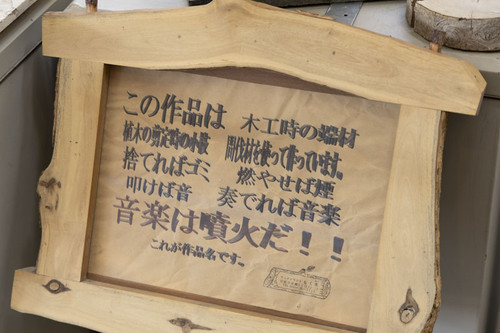 この作品は 木工時の端材
植木の剪定時の小枝 間伐材を使って作っています。
捨てればゴミ 燃やせば煙
叩けば音 奏でれば音楽
音楽は噴火だ！！
これが作品名です。